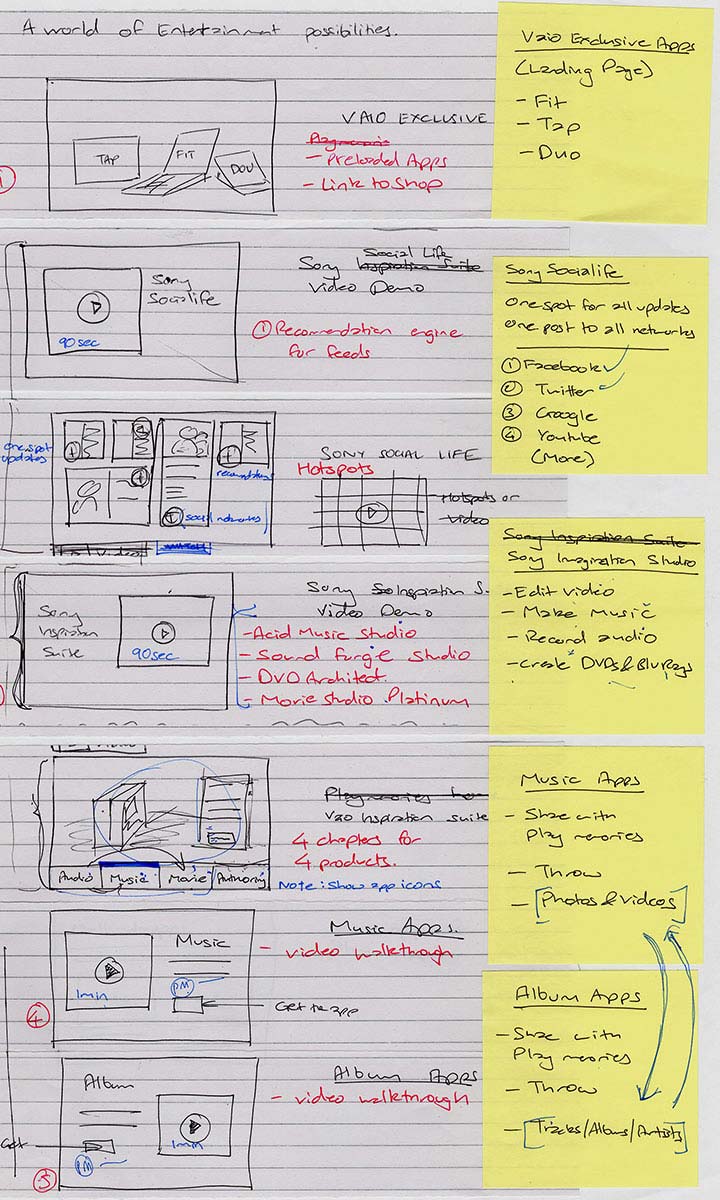 A world of Entertainment possibilities.
VAIO EXCLUSIVE
TAP
FIT
DOU
- Preloaded Apps
- Link to Shop
1
Vaio Exclusive Apps
(Landing Page)
- Fit
- Tap
- Duo
Sony
Socialife
90sec
Social Life
Sony Inspiration Suite
Video Demo
① Recomendation engine
for feeds
Sony Socialife
One spot for all updates
One post to all networks
① Facebook
② Twitter
③ Google
④ Youtube
(More)
one spot
updates
social networks
SONY SOCIAL LIFE
Hotspots
Hotspots or
video
Sony Inspiration Suite
Sony Imagination Studio
- Edit video
- Make Music
- Record audio
- Create DVDs & BluRays
Sony
Inspiration
Suite
90sec
Sony Inspiration S.
Video Demo
- Acid Music Studio
- Sound Forge Studio
- DVD Architect.
- Movie Studio Platinum
Vaio Inspiration suite
4 chapters for
4 products.
Audio
Music
Movie
Authoring
Note: Show app icons
Music Apps
- Share with
Play memories
- Throw
- [Photos & Videos]
Music Apps.
- video walkthrough
Music
1min
PM
Get the app
4
Album Apps
- Share with
Play memories
- Throw
- [Tracks/Albums/Artists]
Album Apps
- video walkthrough
Album
Get
1min
PM
5